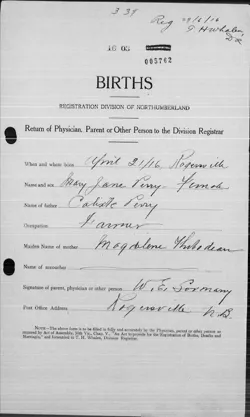 3 38
Reg 29/6/16
T. H. Whalen,
D.R.
003762
BIRTHS
REGISTRATION DIVISION OF NORTHUMBERLAND
Return of Physician, Parent or Other Person to the Division Registrar
When and where born April 21/16 Rogersville
Name and sex Mary Jane Perry Female
Name of father Calixte Perry
Occupation Farmer
Maiden Name of mother Magdalene Thibodeau
Name of accoucher
Signature of parent, physician or other person W. E.
Post Office Address Rogersville N.B.
NOTE.—The above form is to be filled in fully and accurately by the Physician, parent or other person as
required by Act of Assembly, 50th Vic., Chap. V., "An Act responsible for the Registration of Births, Deaths and
Marriages," and forwarded to T. H. Whalen, Division Registrar.